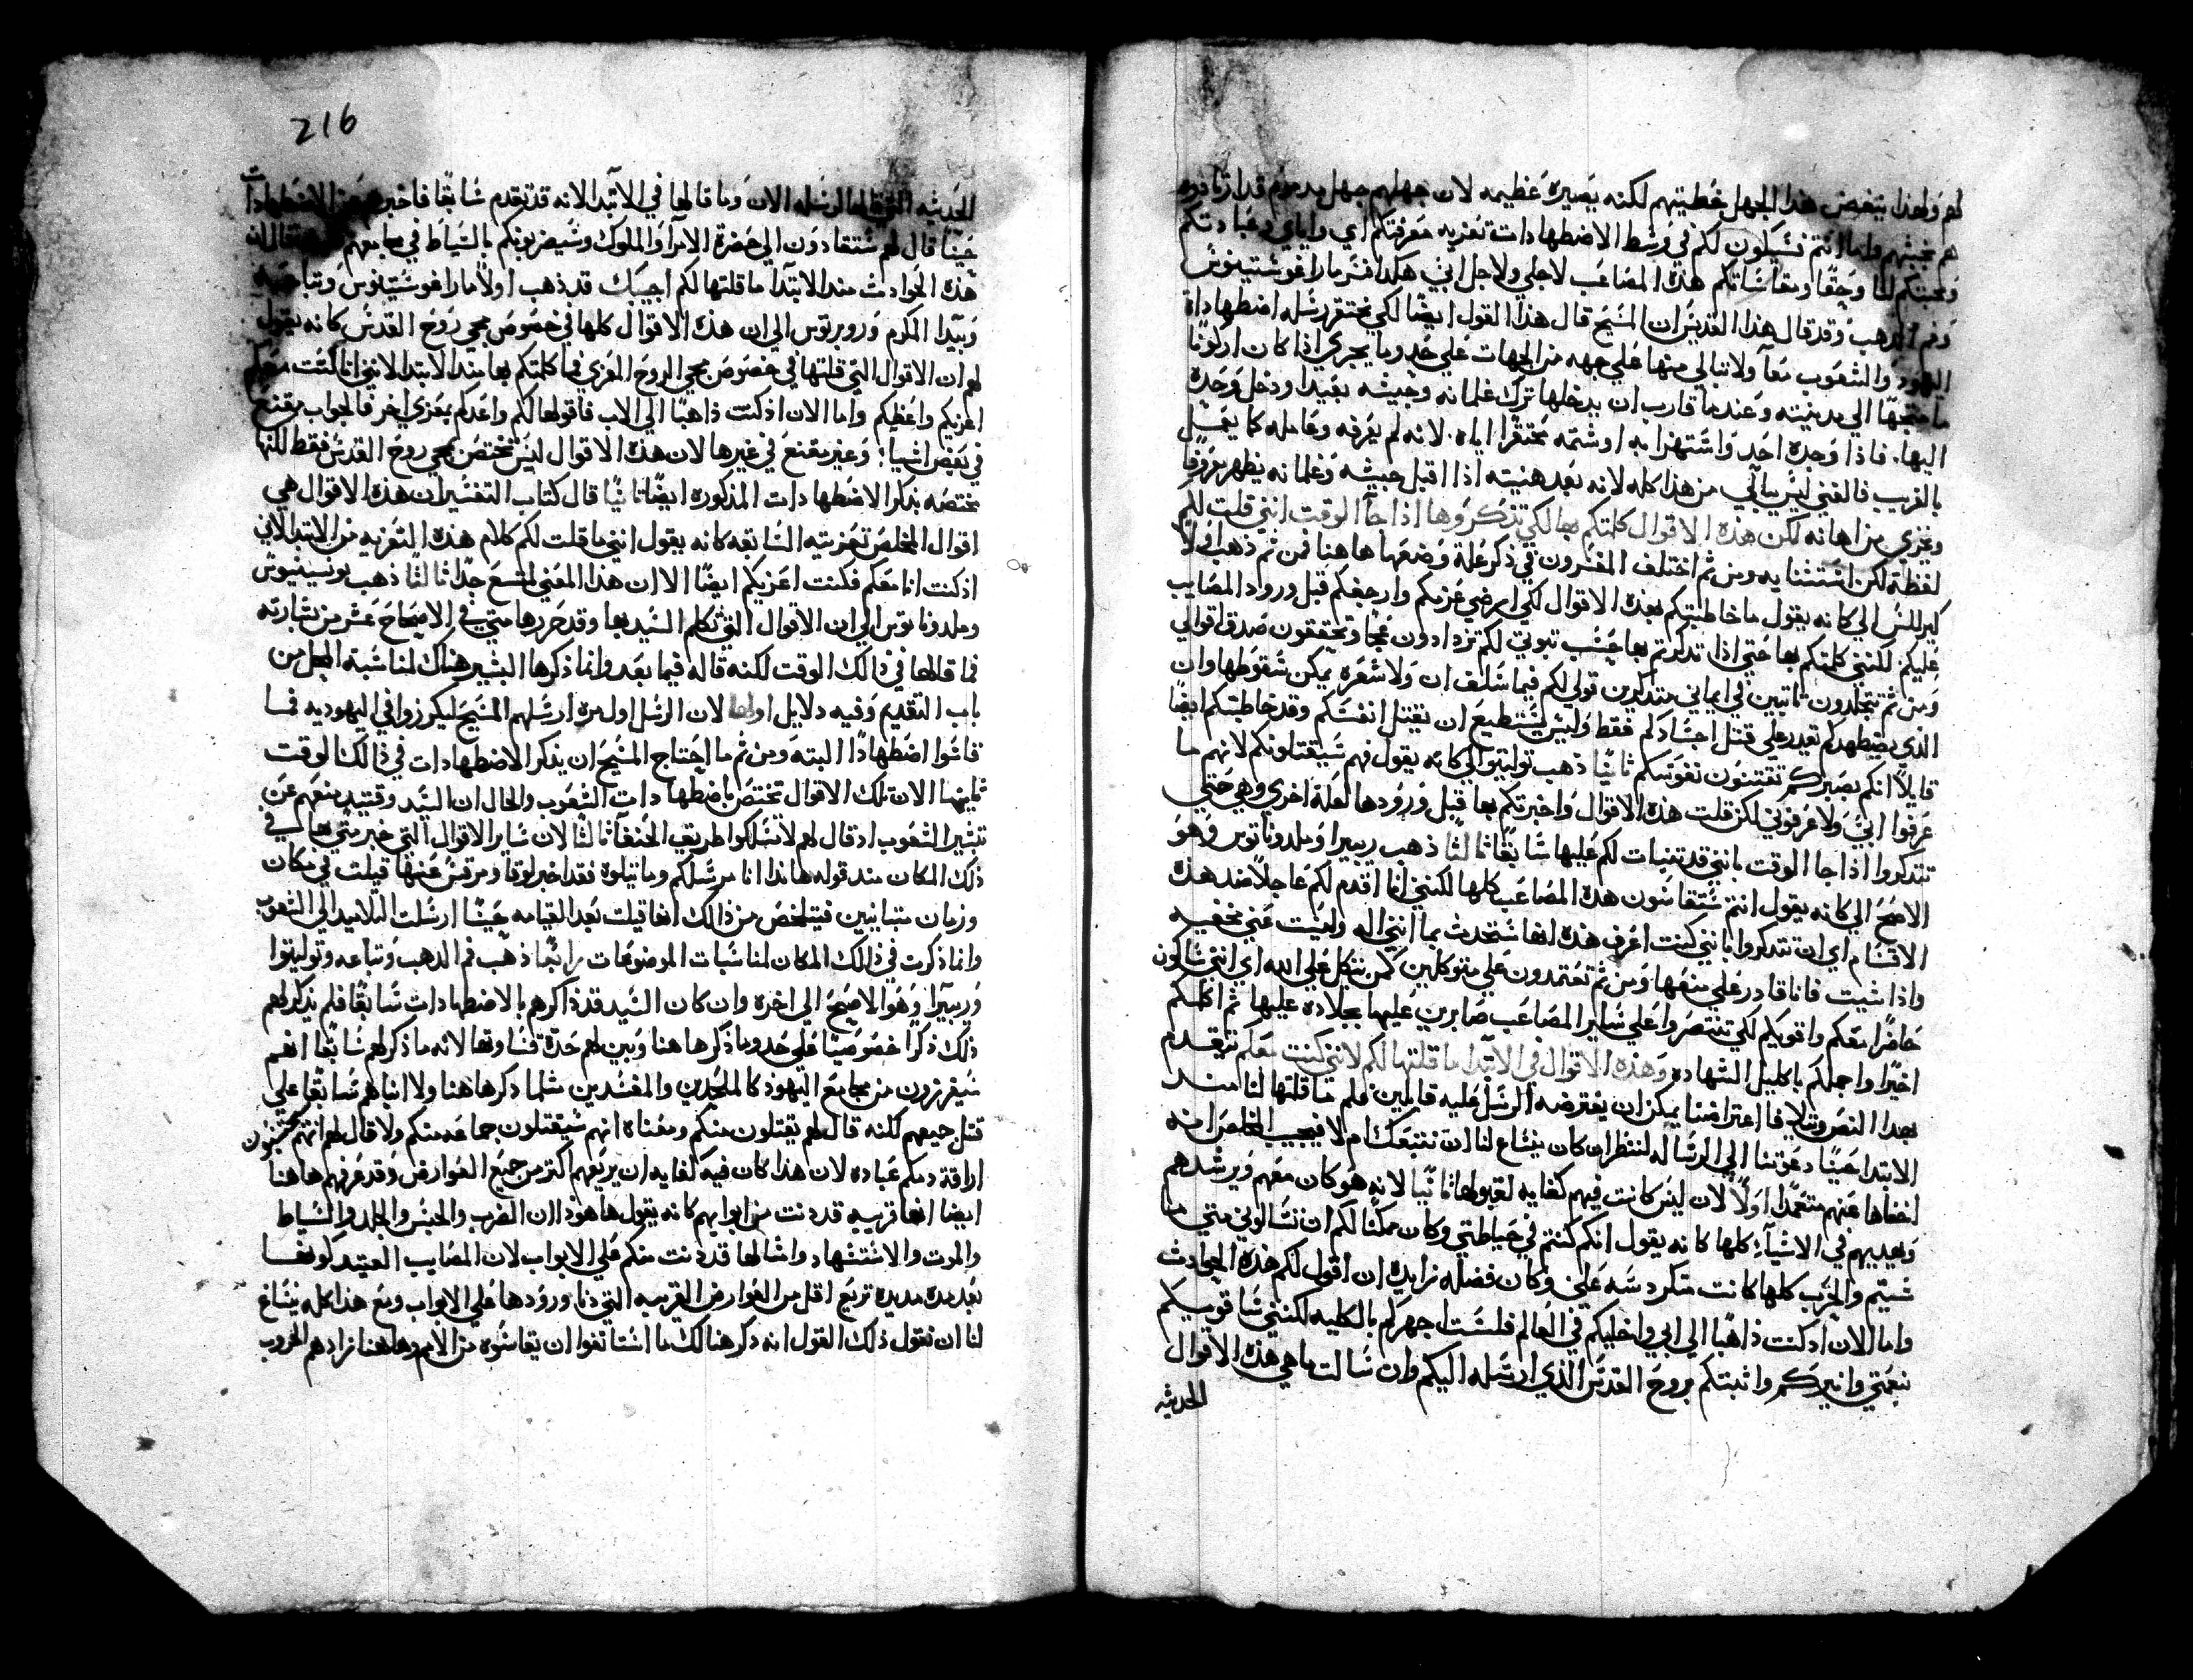 لهم ولهذا يبغض هذا الجهل خطيتهم لكنه يصيره عظيمه لان جهلهم جهل مدموم قد ازنادوه
هم بخبثهم واما انتم فسيكون لكم في وسط الاضطهادات تعزيه معرفتكم اي واياي وعبادتكم
ومحبتكم لنا وحقا ومقاساتكم هذه المصاعب لاجلي ولاجل ابي هكدا فسر مار اغوستينوس
وفم الدهب وقد قال هذا القديس ان المسيح قال هذا القول ايضا لكي نحتقر رسله اضطهاداة
اليهود والشعوب معا ولا نبالي منها علي جهه من الجهات علي حد وما يجري اذا كان اركونا
ما متجها الي مدينته وعندما قارب ان يدخلها ترك غلمانه وجيشه بعيدا ودخل وحده
اليها. فاذا وجده احد واستهزا به او شتمه محتقرا اياه. لانه لم يعرفه وعامله كما يعمل
بالغريب فالغني ليس يبالي من هذا كله لانه بعد هنيئه اذا اقبل جيشه وغلمانه يظهر معزوزا
وبخزي من اهانه لكن هذه الاقوال كلمتكم بها لكي تذكروها اذا جا الوقت انني قلت لكم
لفظة لكن استثنايه ومن ثم اختلف المفسرون في ذكر علة وضعها هاهنا فمن ثم ذهب اولا
كيرللس الي كانه يقول ما خاطبتكم بهذه الاقوال لكي ارضي عزمكم وارجفكم قبل ورود المصايب
عليكم. لكنني كلمتكم بها حتي اذا تدكرتم بها حسب تبوتي لكم تزدادون فهما وتحققون صدق اقوالي
ومن ثم تتجلدون تابتين في ايماني متدكرين قولي لكم فيما سلف ان ولا شعره يمكن سقوطها وان
الذي يضطهدكم تعدر علي قتل اجسادكم فقط وليس يستطيع ان يقتل انفسكم وقد خاطبتكم ايضا
قايلا انكم بصبركم تقتنون نفوسكم ثانيا ذهب توليتو الي كانه يقول فهم سيقتلونكم لانهم ما
عرفوا ابي ولا عرفوني لكن قلت هذه الاقوال واخبرتكم بها قبل ورودها لعلة اخري وهي حتي
تتدكروا اذا جا الوقت بانني قد تنبات لكم عليها سابقا ثالثا ذهب ريبيرا وملدوناتوس وهو
الاصح الي كانه يقول انتم ستقاسون هذه المصاعب كلها لكنني انا اقدم لكم عاجلا ضد هذه
الاقسام اي ان تتدكروا بانني كنت اعرف هذه انها ستحدث بما انني اله وليست عني مخفيه
واذا شيت فانا قادر علي منعها ومن ثم تعتمدون علي متوكلين كمن يتكل علي الله اي انني ساكون
حاضرا معكم واقويكم لكي تنتصروا علي ساير المصاعب صابرين عليها بجلاده عليها ثم اكلكم
اخيرا واجملكم باكليل الشهاده وهذه الاقوال في الابتدا ما قلتها لكم لانني كنت معكم تيقدم
بهدا النص وتلا فا اعتراضا يمكن ان يفترضه الرسل عليه قايلين فلم ما قلتها لنا منذ
الابتدا حينا دعوتنا الي الرساله لننظر ان كان ينساغ لنا ان نتبعك ام لا فيجيب المخلص انه
اخفاها عنهم متعمدا اولا لان ليس كانت فيهم كفايه لقبولها ثانيا لانه هو كان معهم ويرشدهم
ويهديهم في الاشياء كلها كانه يقول انكم كنتم في حياطتي وكان ممكنا لكم ان تسالوني متي ما
شيتم والحرب كلها كانت متكردسه علي وكان فضله زايده ان اقول لكم هذه الحوادث
واما الان ادكنت ذاهبا الي ابي واخليكم في العالم فلست اجهركم بالكليه لكنني ساقويكم
نعمتي وانيركم واثبتكم بروح القدس الذي ارسله اليكم وان سالت ما هي هذه الاقوال
الحديثه
216
الحديثه التي قالها لرسله الان وما قالها في الابتدا لانه قد تقدم سابقا فاخبرهم عن الاضطهادات
حينا قال لهم ستقادون الي حضرة الامرا والملوك وسيضربونكم بالسياط في مجامعهم فكيف قال ان
هذه الحوادث منذ الابتدا ما قلتها لكم اجيبك قد ذهب اولا مار اغوستينوس وتباعه
وبيدا المكرم وروبرتوس الي ان هذه الاقوال كلها في خصوص مجي روح القدس كانه يقول
لهم ان الاقوال التي قلتها في خصوص مجي الروح المعزي فما كلمتكم بها منذ الابتدا لانني انا كنت معكم
اعزيكم واعظكم واما الان اذ كنت ذاهبا الي الاب فاقولها لكم واعدكم بمعزي اخر فالجواب مقنع
في بعض اشيا؛ وغير مقنع في غيرها لان هذه الاقوال ليس تختص بمجي روح القدس فقط لكنها
مختصه بذكر الاضطهادات المذكوره ايضا ثانيا قال كتاب التفسير ان هذه الاقوال هي
اقوال المخلص تعزيته السابقه كانه يقول انني ما قلت لكم كلام هذه التعزيه من الابتدا لاني
اذ كنت انا معكم فكنت اعزيكم ايضا الا ان هذا المعني لتسع جدا ثالثا ذهب يونسينيوس
وملدوناتوس الي ان الاقوال التي تكلم السيد بها وقد حررها متي في الاصحاح عشر من بشارته
فما قالها في ذالك الوقت لكنه قاله فيما بعد وانما ذكرها البشير هناك لمناسبة المحل من
باب التقديم وفيه دلايل اولها لان الرسل اول مره ارسلهم المسيح ليكرزوا في اليهوديه فما
قاسوا اضطهادا البته ومن ثم ما احتاج المسيح ان يذكر الاضطهادات في ذالك الوقت
ثانيها الان تلك الاقوال تختص باضطهادات الشعوب والحال ان السيد وقتيد منعهم عن
تبشير الشعوب اد قال لهم لا تسلكوا طريق الحنفآ ثالثا لان ساير الاقوال التي خبر متي بها في
ذلك المكان منذ قوله هاندا انا مرسلكم وما يتلوه فقد اخبر لوقا ومرقس عنها قيلت في مكان
وزمان متباينين فيتلخص من ذالك انها قيلت بعد القيامه حينا ارسلت التلاميد الي الشعوب
وانما ذكرت في ذالك المكان لمناسبات الموضوعات رابعا ذهب فم الدهب وتباعه وتوليتوا
وريبيرا وهو الاصح الي اخره وان كان السيد قد ذاكرهم بالاضطهادات سابقا فلم يذكر لهم
ذلك ذكرا خصوصيا علي حد وما ذكرها هنا وبين لهم حدة قساوتها لانه ما ذكر لهم سابقا انهم
سيفرزون من مجامع اليهود كالملحدين والمفسدين مثلما دكرها هنا ولا انباهم سابقا علي
قتل جميعهم لكنه قال لهم يقتلون منكم ومعناه انهم سيقتلون جماعه منكم ولا قال لهم انهم يحتسبون
اراقة دمكم عباده لان هذا كان فيه كفايه ان يريعهم اكتر من جميع العوارض وقد عرفهم هاهنا
ايضا انها قريبه قد دنت من ابوابهم كانه يقول ها هوذا ان الضرب والحبس والجلد والسياط
والموت والاستشهاد وامثالها قد دنت منكم علي الابواب لان المصايب العتيد كونها
بعد مده مديده تريع اقل من العوارض القريبه التي دنا ورودها علي الابواب ومع هذا كله ينساغ
لنا ان نقول ذلك القول انه دكر هنالك ما استانفوا ان يقاسوه من الامم وهاهنا زادهم الحروب